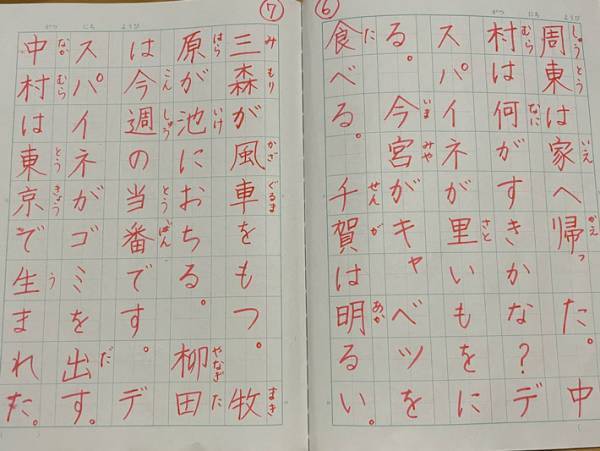 ⑥
がつ にち ようび
しゅう とう いえ かえ
周東は家へ帰った。中
むら なに
村は何がすきかな?デ
さと
スパイネが里いもをに
いま みや
る。今宮がキャベツを
た せん が あか
食べる。千賀は明るい。
⑦
がつ にち ようび
み もり かざ ぐるま まき
三森が風車をもつ。牧
はら いけ やなぎ た
原が池におちる。柳田
こん しゅう とう ばん
は今週の当番です。デ
だ
スパイネがゴミを出す。
なか むら とう きょう う
中村は東京で生まれた。